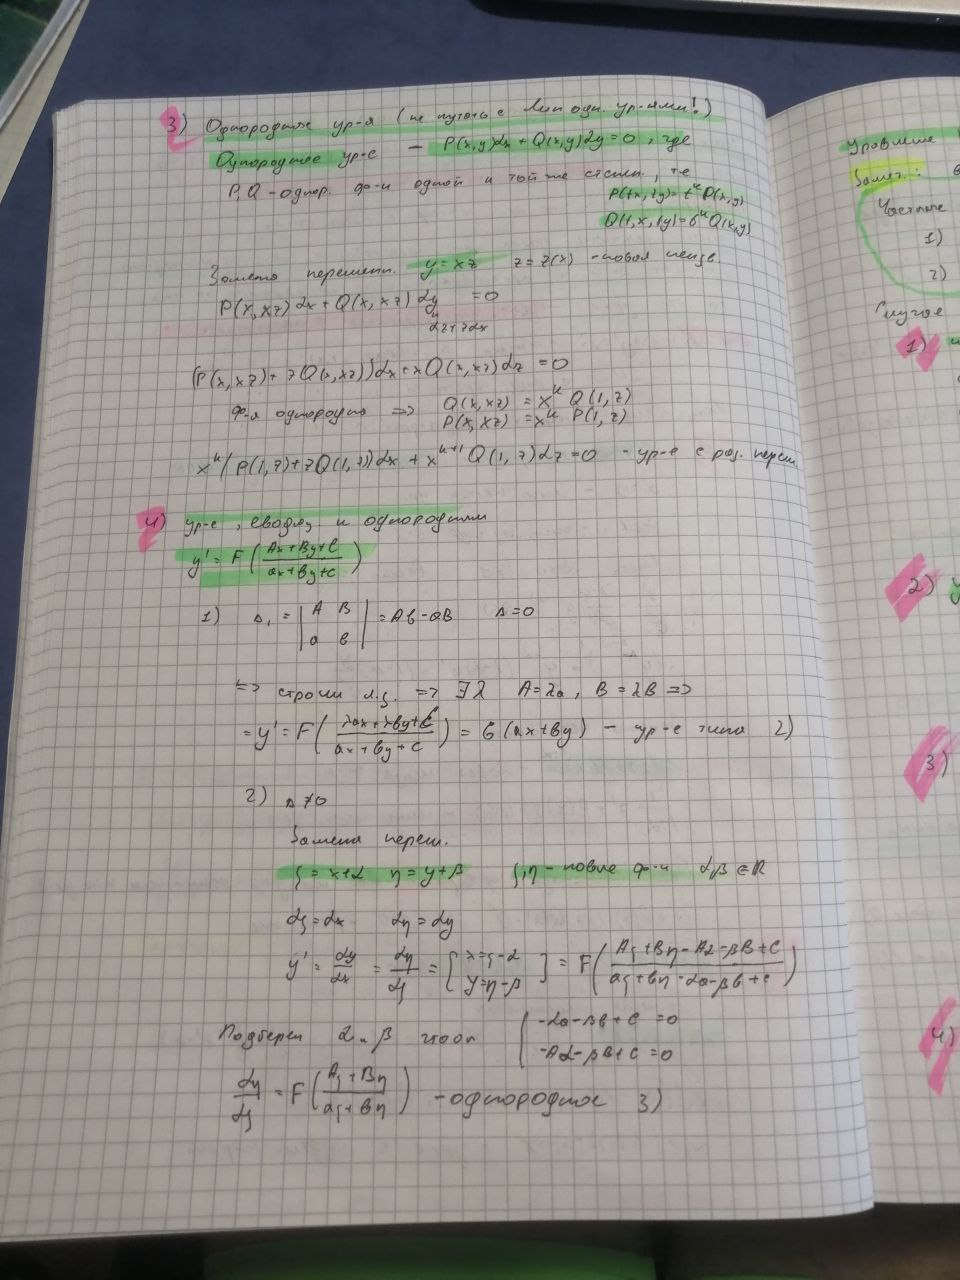 3) Однородные ур-я (не путать с Лин одн. ур-ями!)
Однородное ур-е — P(x,y)dx + Q(x,y)dy = 0, где
P, Q - однор. ф-и одной и той же степ., т.е
P(tx, ty) = t^k P(x,y)
Q(t,x,ty) = t^k Q(x,y)
Замена перемен. y = xz z = z(x) - новая неизв.
P(x, xz) dx + Q(x, xz) dy = 0
(P(x, xz) + zQ(x, xz))dx + xQ(x, xz)dz = 0
Q(x, xz) = x^k Q(1, z)
Ф-я однородна => P(x, xz) = x^k P(1, z)
x^k (P(1, z) + zQ(1, z))dx + x^{k+1} Q(1, z)dz = 0 - ур-е с раз. перем
4) ур-е, сводящ к однородным
y' = F((Ax + By + C)/(ax + by + c))
1) Δ, = |A B; a b| = Ab - aB Δ = 0
=> строки л.з. => ∃λ A = λa, B = λB =>
= y' = F((λax + λby + C)/(ax + by + c)) = G(ax + by) — ур-е типа 2)
2) Δ ≠ 0
Замена перем.
ξ = x + α η = y + β ξ, η - новые ф-и α, β ∈ R
dξ = dx dη = dy
y' = dy/dx = dη/dξ = [x = ξ - α; y = η - β] = F((Aξ + Bη - Aα - βB + C)/(aξ + bη - αa - βb + c))
Подберем α и β чтоб { -αa - βb + C = 0
-Aα - βB + C = 0
dη/dξ = F((Aξ + Bη)/(aξ + bη)) - однородное 3)
уровнение
Замеч.: в
Частные
1)
2)
Случае
1)
2) у
3)
4)